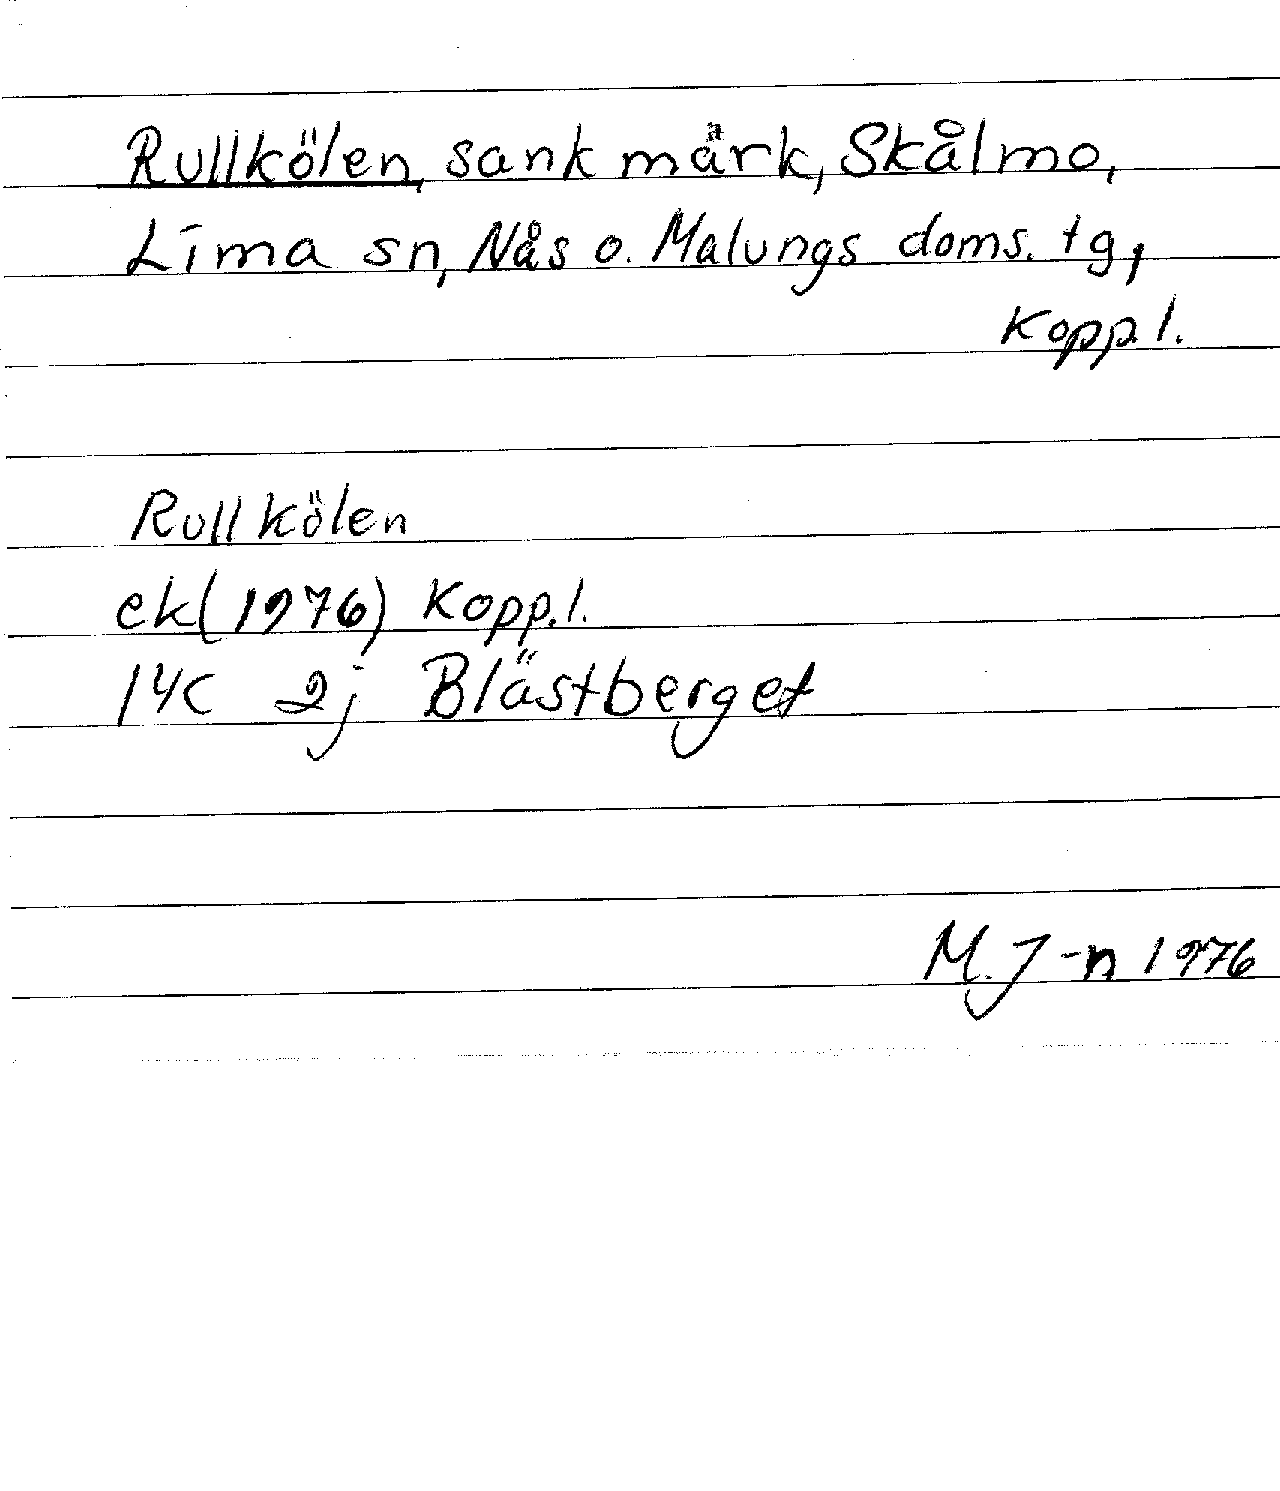 Rullkölen, sank mark, Skålmo,
Lima sn, Nås o. Malungs doms. tg,
Kopp.l.
Rullkölen
ek(1976) Kopp.l.
14C 2j Blästberget
M.J-n 1976